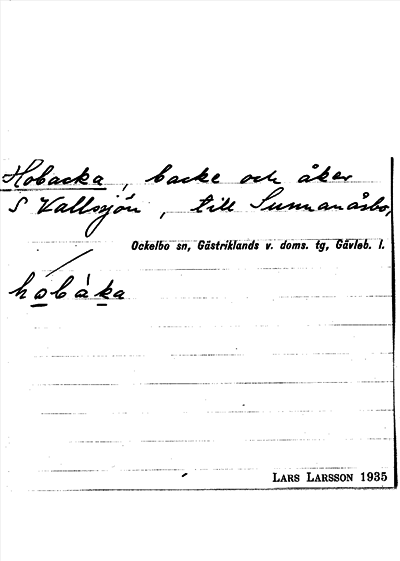 Hobacka, backe och åker
S Vallsjön, till Sunnanåsbo,
Ockelbo sn, Gästriklands v. doms. tg, Gävleb. l.
hobàka
LARS LARSSON 1935